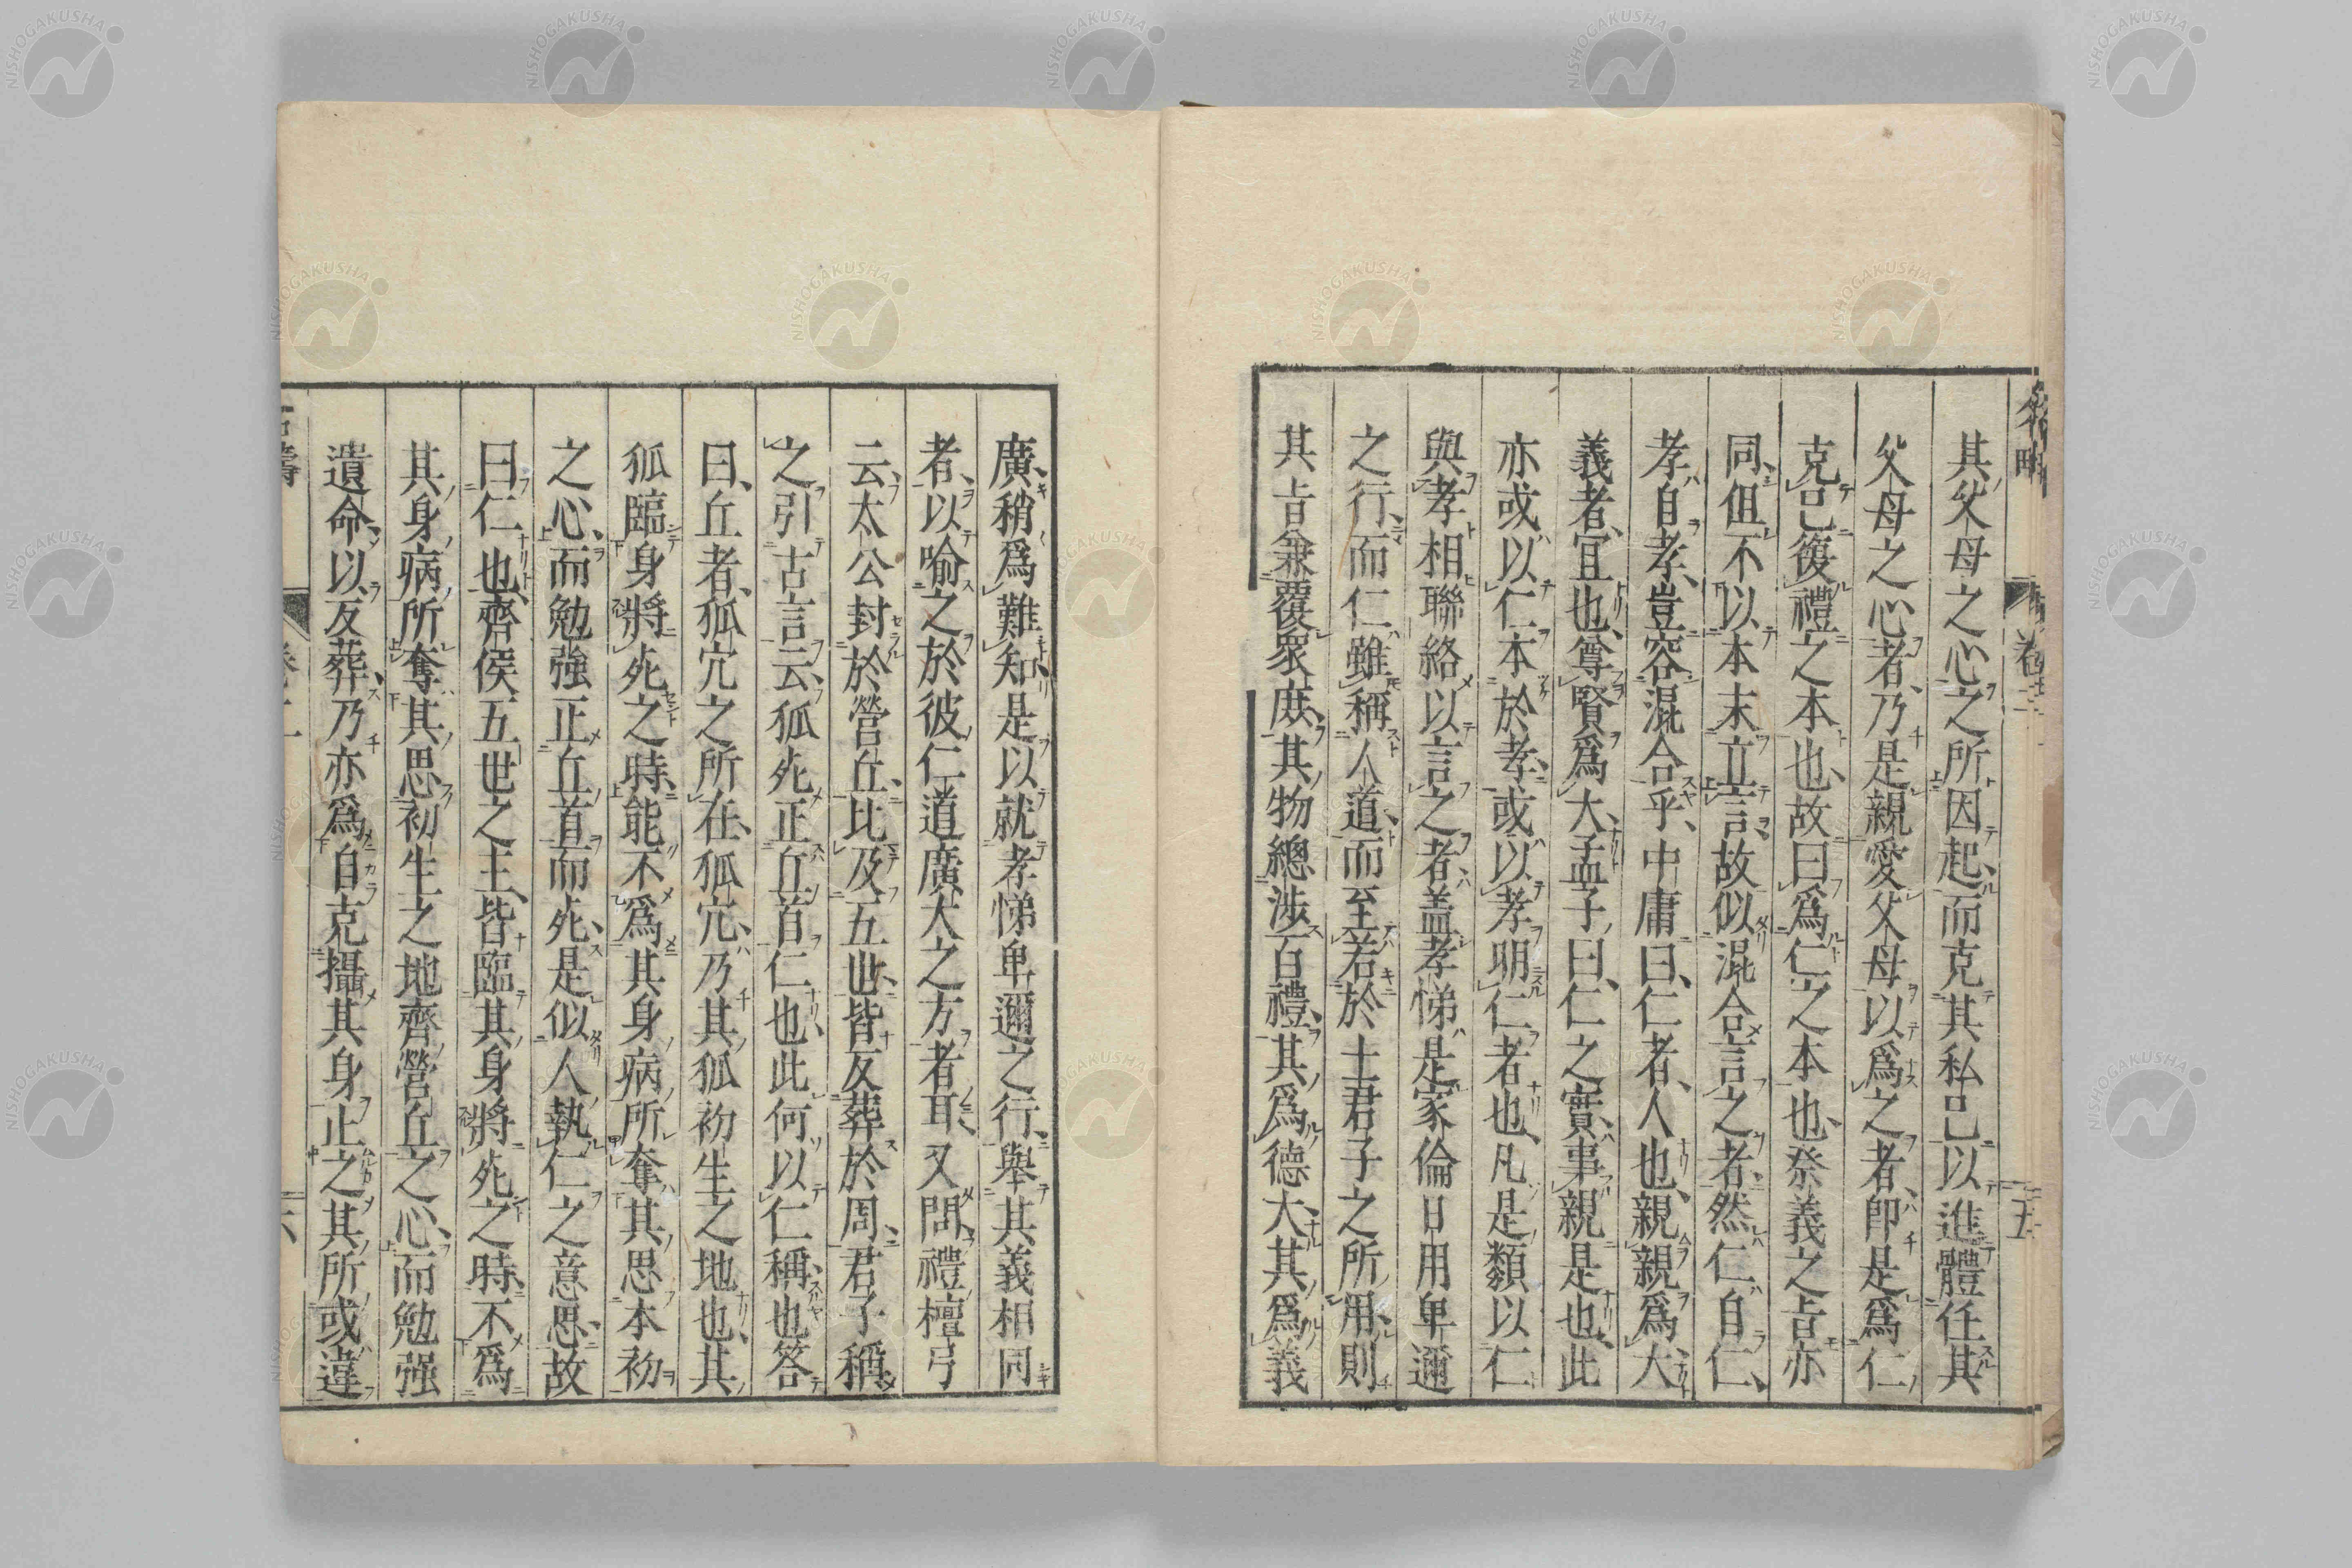 其父母之心之所因起、而克其私己以進體任其
父母之心者、乃是親愛父母以爲之者、卽是爲仁
克己復禮之本也、故曰爲仁之本也、癸義之旨亦
同、但不以本末立言、故似混合言之者、然仁自仁、
孝自孝、豈容混合乎、中庸曰、仁者、人也、親親爲大、
義者、宜也、尊賢爲大、孟子曰、仁之實、事親是也、此
亦或以仁本於孝、或以孝明仁者也、凡是類以仁
與孝相聯絡以言之者、蓋孝悌是家倫日用卑邇
之行、而仁雖稱人道、而至若於士君子之所用、則
其旨兼覆衆庶、其物總渉百禮、其爲德大、其爲義
廣、稍爲難知、是以就孝悌卑邇之行、舉其義相同
者、以喻之於彼仁道廣大之方者耳、又問、禮檀弓
云、太公封於營丘、比及五世、皆反葬於周、君子稱
之引古言云、狐死正丘首仁也、此何以仁稱也、答
曰、丘者、狐穴之所在、狐穴、乃其狐初生之地也、其
狐臨身將死之時、能不爲其身病所奪其思本初
之心、而勉強正丘首而死、是似人執仁之意思、故
曰仁也、齊侯五世之主、皆臨其身將死之時、不爲
其身病所奪其思初生之地齊營丘之心、而勉强
遺命、以反葬、乃亦爲自克攝其身止之其所或違
卷二
五
六